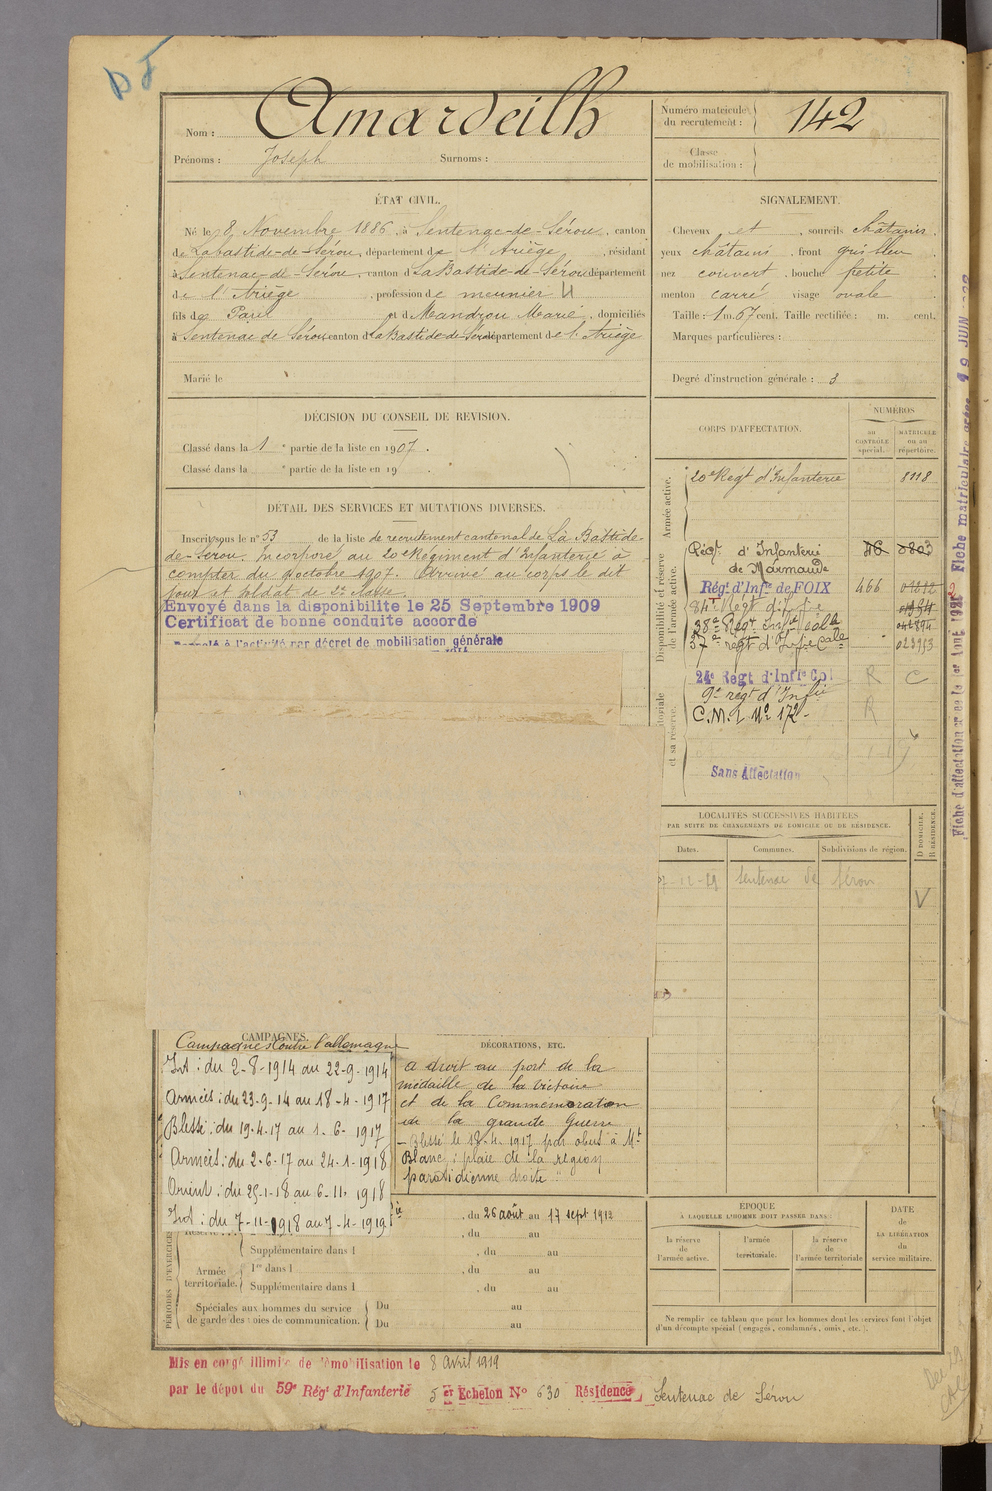 DF
Nom : Amardeilh
Prénoms : Joseph Surnoms :
Numéro matricule du recrutement : 142
Classe de mobilisation :
ÉTAT CIVIL.
Né le 8 Novembre 1886, à Sentenac-de-Sérou, canton
de Labastide-de-Sérou, département de l'Ariège, résidant
à Sentenac-de-Sérou, canton d LaBastide-de-Sérou département
de l'Ariège, profession de meunier
fils de Paul et d Mandrou Marie, domiciliés
à Sentenac de Sérou canton d LaBastide-de-Sérou département de l'Ariège
Marié le
SIGNALEMENT.
Cheveux et, sourcils châtains,
yeux châtains, front gris bleu
nez couvert, bouche petite
menton carré visage ovale
Taille : 1 m. 67 cent. Taille rectifiée : m. cent.
Marques particulières :
Degré d'instruction générale : 3
DÉCISION DU CONSEIL DE REVISION.
Classé dans la 1 e partie de la liste en 1907.
Classé dans la e partie de la liste en 19 .
DÉTAIL DES SERVICES ET MUTATIONS DIVERSES.
Inscrit sous le n° 53 de la liste de recrutement cantonal de La Bastide-
de-Sérou. Incorporé au 20e Régiment d'Infanterie à
compter du octobre 1907. Arrivé au corps le dit
jour et soldat de 2e classe.
Envoyé dans la disponibilité le 25 Septembre 1909
Certificat de bonne conduite accordé
Rappelé à l'activité par décret de mobilisation générale
CORPS D'AFFECTATION.
NUMÉROS
au contrôle spécial.
matricule ou au répertoire.
Armée active.
20e Regt d'Infanterie 8118
Disponibilité et réserve de l'armée active.
Régt d'Infanterie
de Marmande
Régt d'Infie de FOIX 466
84e Regt d'Infie
38e Regt Infie Colle
37e regt d'Infie Cale 023953
24e Régt d'Infie Col R C
9e régt d'Infie
C.M.I No 172 R
et sa réserve.
Sans Affectation
LOCALITÉS SUCCESSIVES HABITÉES
PAR SUITE DE CHANGEMENTS DE DOMICILE OU DE RÉSIDENCE.
Dates. Communes. Subdivisions de région. D DOMICILE. R RÉSIDENCE.
Sentenac de Sérou
V
CAMPAGNES.
Campagnes Contre l'allemagne
Int : du 2-8-1914 au 22-9-1914
Armées : du 23-9-14 au 18-4-1917
Blessé : du 19-4-17 au 1-6-1917
Armées : du 2-6-17 au 24-1-1918
Orient : du 25-1-18 au 6-11-1918
Int : du 7-11-1918 au 7-4-1919
DÉCORATIONS, ETC.
a droit au port de la
médaille de la Victoire
et de la Commemoration
de la grande Guerre
— Blessé le 18-4-1917 par obus à Mt
Blanc : plaie de la région
parotidienne droite "
PÉRIODES D'EXERCICES
, du 26 août au 17 sept 1912
, du au
Supplémentaire dans l , du au
Armée territoriale.
1re dans l , du au
Supplémentaire dans l , du au
Spéciales aux hommes du service
de garde des voies de communication.
Du au
Du au
ÉPOQUE
À LAQUELLE L'HOMME DOIT PASSER DANS :
la réserve de l'armée active.
l'armée territoriale.
la réserve de l'armée territoriale
DATE de LA LIBÉRATION du service militaire.
Ne remplir ce tableau que pour les hommes dont les services font l'objet
d'un décompte spécial (engagés, condamnés, omis, etc.).
Mis en congé illimité de démobilisation le 8 avril 1919
par le dépôt du 59e Régt d'Infanterie 5 er Echelon No 630 Résidence Sentenac de Sérou